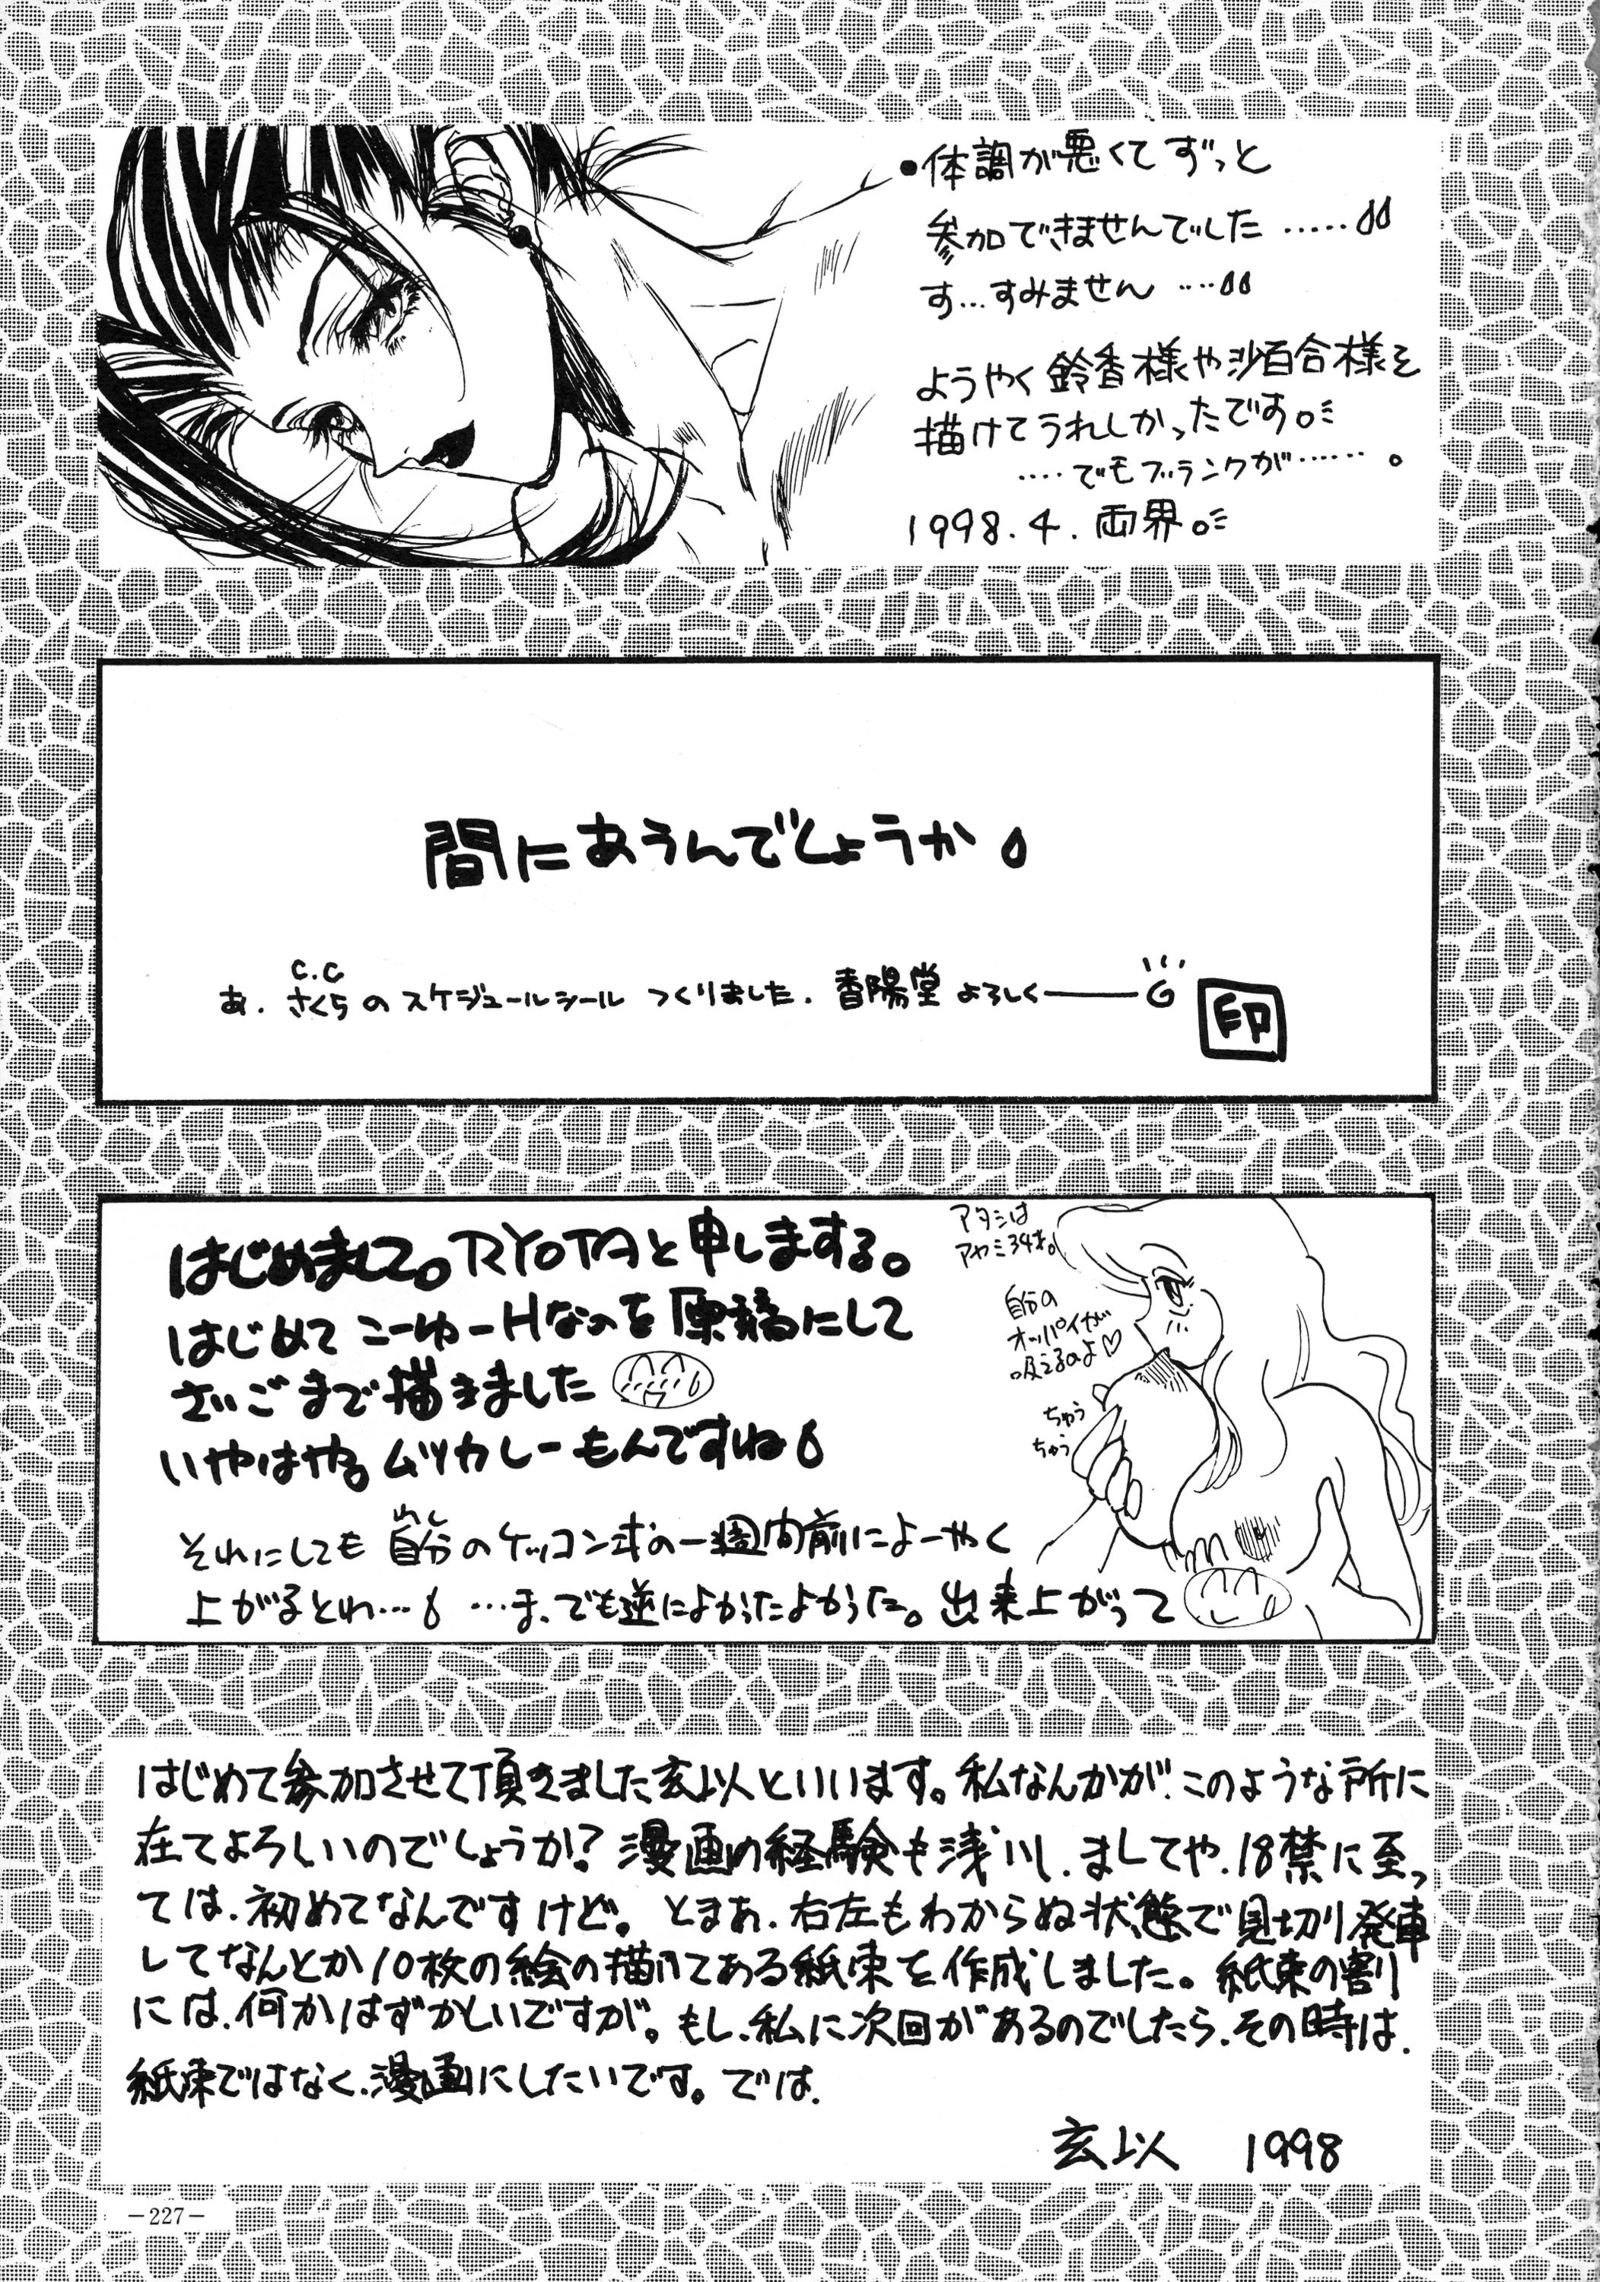 ●体調が悪くてずっと
参加できませんでした……
す…すみません……
ようやく鈴香様や沙百合様を
描けてうれしかったです。
……でもブランクが……。
1998.4.両界。
間にあうんでしょうか。
C.C
あ.さくらのスケジュールシール つくりました.香陽堂よろしく――
印
はじめまして。RYOTAと申しまする。
はじめてこーゆーHなのを原稿にして
さいごまで描きました
いやはや。ムツカシーもんですね
それにしても自分のケッコン式の一週間前によーやく
上がるとわ… …ま、でも逆によかったよかった。出来上がって
アタシは
アヤミ34才。
自分の
オッパイが
吸えるのよ♡
ちゅう
ちゅう
はじめて参加させて頂きました玄以といいます。私なんかが、このような所に
在てよろしいのでしょうか?漫画の経験も浅いし、ましてや、18禁に至っ
ては、初めてなんですけど。とまあ、右左もわからぬ状態で見切り発車
してなんとか10枚の絵の描いてある紙束を作成しました。紙束の割り
には、何かはずかしいですが。もし、私に次回があるのでしたら、その時は、
紙束ではなく、漫画にしたいです。では、
玄以 1998
-227-